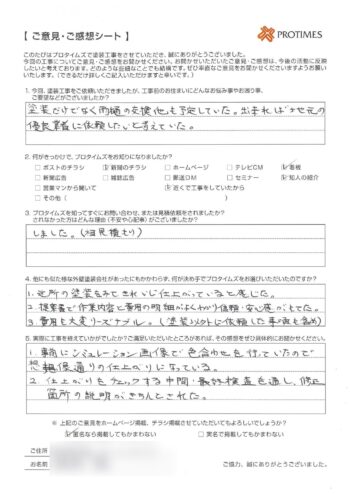 【 ご意見・ご感想シート 】
PROTIMES
このたびはプロタイムズで塗装工事をさせていただき、誠にありがとうございました。
今回の工事についてご意見・ご感想をお聞かせください。お聞かせいただいたご意見・ご感想は、今後の活動に反映
したいと考えております。どのような些細なことでも結構です。ぜひ率直なご意見をお聞かせくださいますようお願い
いたします。(できるだけ詳しくご記入いただけますと幸いです。)
1. 今回、塗装工事をご依頼いただきましたが、工事前のお住まいにどんなお悩み事やお困り事、
ご要望などがございましたか?
塗装だけでなく雨樋の交換他も予定していた。出来れば地元の
優良業者に依頼したいと考えていた。
2. 何がきっかけで、プロタイムズをお知りになりましたか?
□ ポストのチラシ ☑ 新聞のチラシ □ ホームページ □ テレビCM ☑ 看板
□ 新聞広告 □ 雑誌広告 □ 郵送DM □ セミナー ☑ 知人の紹介
□ 営業マンから聞いて ☑ 近くで工事をしていたから
□ その他( )
3. プロタイムズを知ってすぐにお問い合わせ、または見積依頼をされましたか?
されなかった方はどんな理由(不安や心配事)がございましたか?
しました。(相見積もり)
4. 他にも似た様な外壁塗装会社があったにもかかわらず、何が決め手でプロタイムズをお選びいただいたのですか?
1. 近所の塗装をみてきれいに仕上がっていると感じた。
2. 提案書で作業内容と費用の明細がよくわかり信頼・安心感がもてた。
3. 費用も大変リーズナブル。(塗装以外に依頼した事項も含め)
5. 実際に工事を終えていかがでしたか?ご満足いただいたところがあれば、その感想をぜひ具体的にお聞かせください。
1. 事前にシュミレーション画像で色合わせを行っていたので
想像通りの仕上がりになっている。
2 仕上がりをチェックする中間・最終検査を通し、修正
箇所の説明がきちんとされた。
※ 上記のご意見をホームページ掲載、チラシ掲載させていただいてもよろしいでしょうか?
☑ 匿名なら掲載してもかまわない □ 実名で掲載してもかまわない
ご住所
お名前
ご協力、誠にありがとうございました。